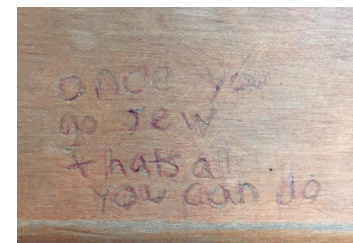 once you
go Jew
thats all
you can do